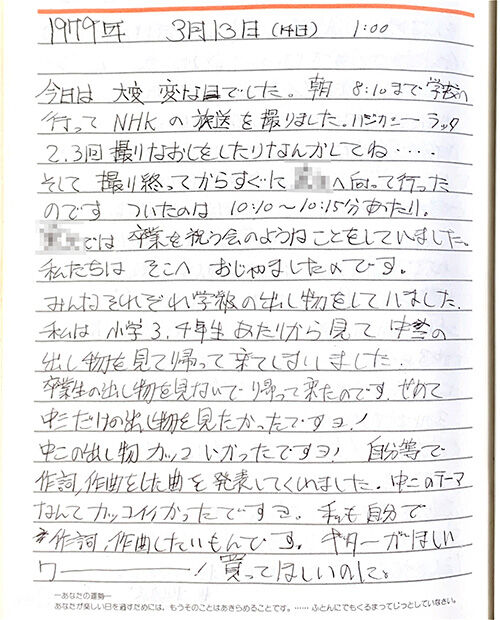 1979年 3月13日 (14日) 1:00
今日は 大変 変な日でした。朝 8:10まで学校へ
行って NHKの放送を撮りました。ハジカシー ラッタ
2.3回撮りなおしをしたりなんかしてね‥‥
そして 撮り終ってからすぐに へ向って行った
のです ついたのは 10:10〜10:15分あたり。
では 卒業を祝う会のようなことをしていました。
私たちは そこへ おじゃましたのです。
みんなそれぞれ学級の出し物をしていました.
私は 小学3.4年生あたりから見て 中の
出し物を見て帰って来てしまいました.
卒業生の出し物を見ないで帰って来たのです. せめて
中三だけの出し物を見たかったですヨ!
中二の出し物 カッコいかったですヨ! 自分等で
作詞,作曲をした曲を発表してくれました. 中二のテーマ
なんてカッコイイかったですヨ. 私も自分で
作詞,作曲したいもんです。ギターがほしい
ワ――――! 買ってほしいのによ
—あなたの運勢—
あなたが楽しい日を過すためには、もうそのことはあきらめることです。……ふとんにでもくるまってじっとしていなさい。